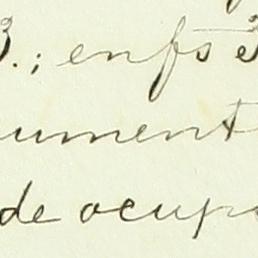 3.; enfs 3
ument
de ocup